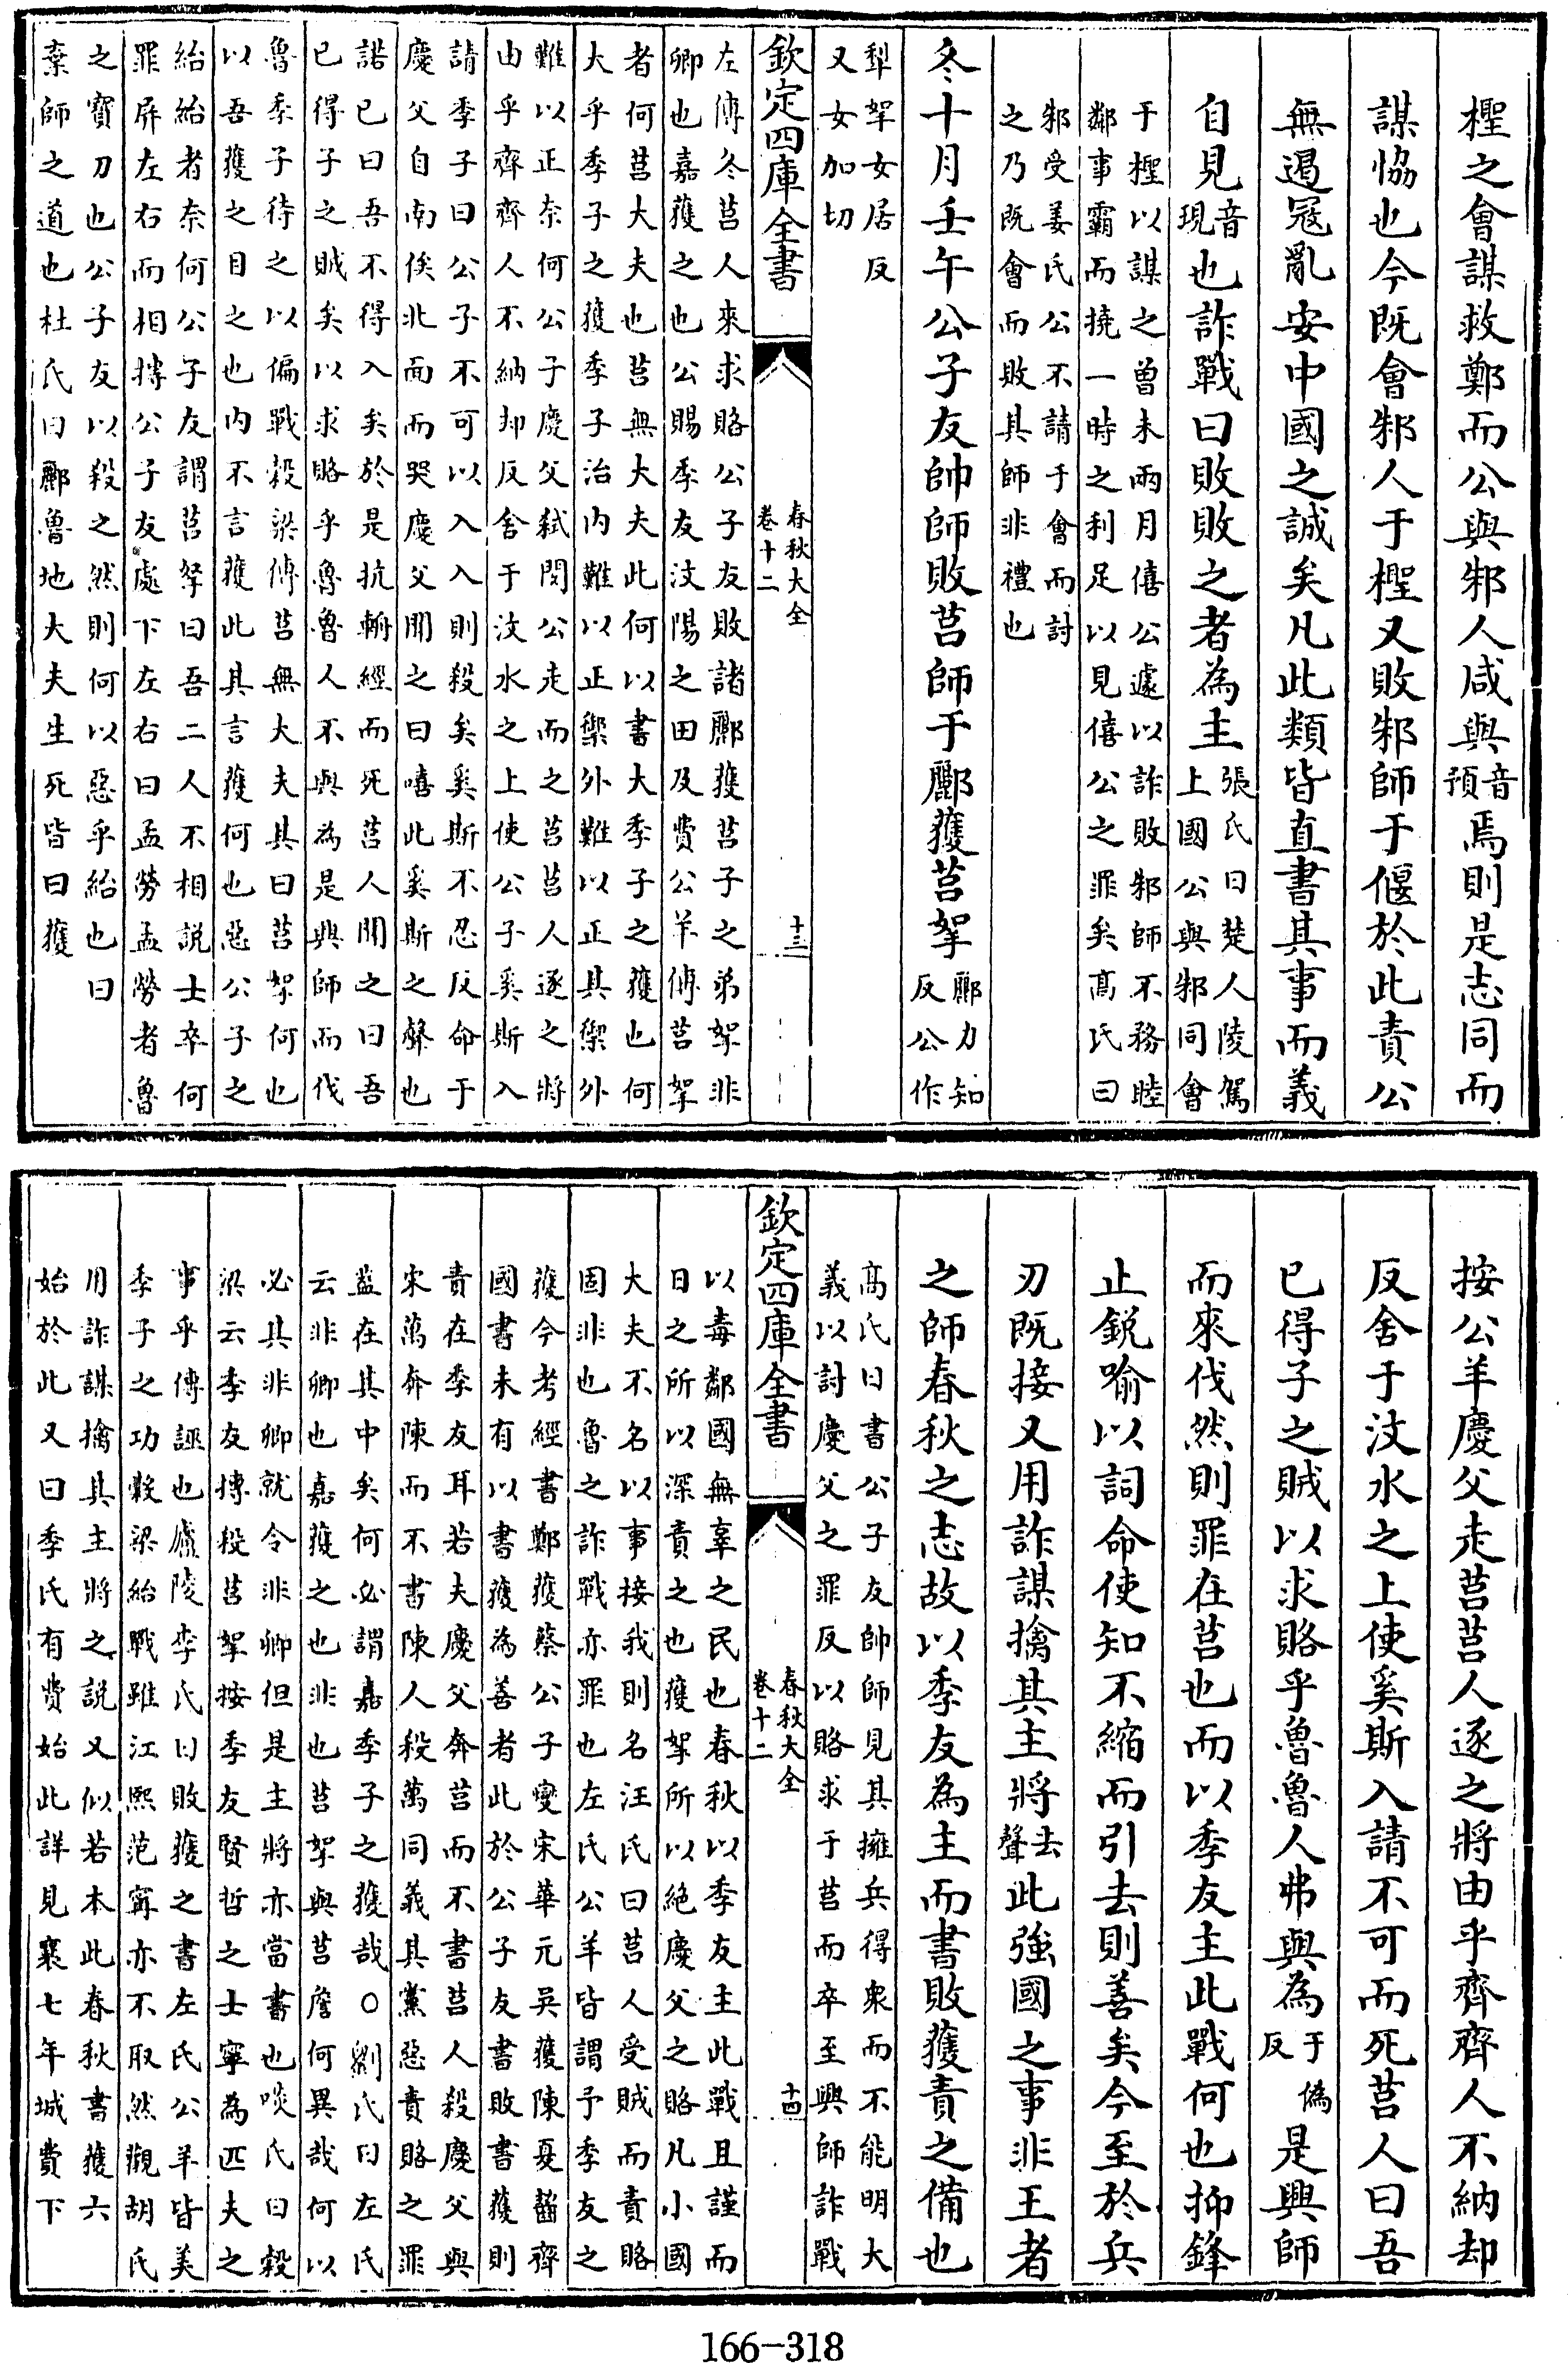 檉之會謀救鄭而公與邾人咸與音預焉則是志同而
謀恊也今既會邾人于檉又敗邾師于偃於此責公
無遏冦亂安中國之誠矣凡此類皆直書其事而義
自見音現也詐戰曰敗敗之者為主張氏曰楚人陵駕上國公與邾同會
于檉以謀之曽未兩月僖公遽以詐敗邾師不務睦
鄰事霸而撓一時之利足以見僖公之罪矣髙氏曰
邾受姜氏公不請于會而討
之乃既會而敗其師非禮也
冬十月壬午公子友帥師敗莒師于酈獲莒挐酈力知反公作
犁挐女居反
又女加切
欽定四庫全書
春秋大全
卷十二
十三
左傳冬莒人來求賂公子友敗諸酈獲莒子之弟挐非
卿也嘉獲之也公賜季友汶陽之田及費公羊傳莒挐
者何莒大夫也莒無大夫此何以書大季子之獲也何
大乎季子之獲季子治内難以正禦外難以正其禦外
難以正奈何公子慶父弑閔公走而之莒莒人逐之將
由乎齊齊人不納却反舍于汶水之上使公子奚斯入
請季子曰公子不可以入入則殺矣奚斯不忍反命于
慶父自南俟北而哭慶父聞之曰嘻此奚斯之聲也
諾已曰吾不得入矣於是抗輈經而死莒人聞之曰吾
已得子之賊矣以求賂乎魯魯人不與為是興師而伐
魯季子待之以偏戰穀梁傳莒無大夫其曰莒挐何也
以吾獲之目之也内不言獲此其言獲何也惡公子之
紿紿者奈何公子友謂莒挐曰吾二人不相説士卒何
罪屏左右而相搏公子友處下左右曰孟勞孟勞者魯
之寶刀也公子友以殺之然則何以惡乎紿也曰
棄師之道也杜氏曰酈魯地大夫生死皆曰獲
按公羊慶父走莒莒人逐之將由乎齊齊人不納却
反舍于汶水之上使奚斯入請不可而死莒人曰吾
已得子之賊以求賂乎魯魯人弗與為于偽反是興師
而來伐然則罪在莒也而以季友主此戰何也抑鋒
止鋭喻以詞命使知不縮而引去則善矣今至於兵
刃既接又用詐謀擒其主將去聲此強國之事非王者
之師春秋之志故以季友為主而書敗獲責之備也
髙氏曰書公子友帥師見其擁兵得衆而不能明大
義以討慶父之罪反以賂求于莒而卒至興師詐戰
欽定四庫全書
春秋大全
卷十二
十四
以毒鄰國無辜之民也春秋以季友主此戰且謹而
日之所以深責之也獲挐所以絶慶父之賂凡小國
大夫不名以事接我則名汪氏曰莒人受賊而責賂
固非也魯之詐戰亦罪也左氏公羊皆謂予季友之
獲今考經書鄭獲蔡公子燮宋華元吳獲陳夏齧齊
國書未有以書獲為善者此於公子友書敗書獲則
責在季友耳若夫慶父奔莒而不書莒人殺慶父與
宋萬奔陳而不書陳人殺萬同義其黨惡責賂之罪
盖在其中矣何必謂嘉季子之獲哉○劉氏曰左氏
云非卿也嘉獲之也非也莒挐與莒詹何異哉何以
必其非卿就令非卿但是主將亦當書也啖氏曰穀
梁云季友摶殺莒挐按季友賢哲之士寧為匹夫之
事乎傳誣也廬陵李氏曰敗獲之書左氏公羊皆美
季子之功穀梁紿戰雖江熙范甯亦不取然觀胡氏
用詐謀擒其主將之説又似若本此春秋書獲六
始於此又曰季氏有費始此詳見襄七年城費下
166-318